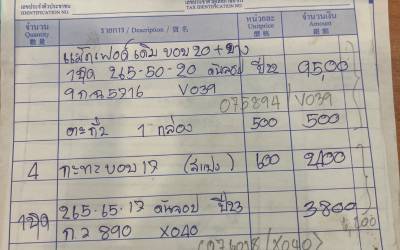 เลขประจำตัวประชาชน
IDENTIFICATION NO.
TAX IDENTIFICATION NO.
จำนวน รายการ / Description / 項 名 หน่วยละ จำนวนเงิน
Quantity Unitprice Amount
數 量 單 價 銀 額
แม็กเฟอด์ เดิม ขอบ 20 + ยาง
1ชุด 265-50-20 ดันลอป ปี22 9500
9กฉ5216 V039
075894 / V039
ตะกั่ว 1 กล่อง 500 500
4 กะทะขอบ 17 (สแปง) 600 2400
1ชุด 265.65.17 ดันลอป ปี23 3800
890 X040
X040